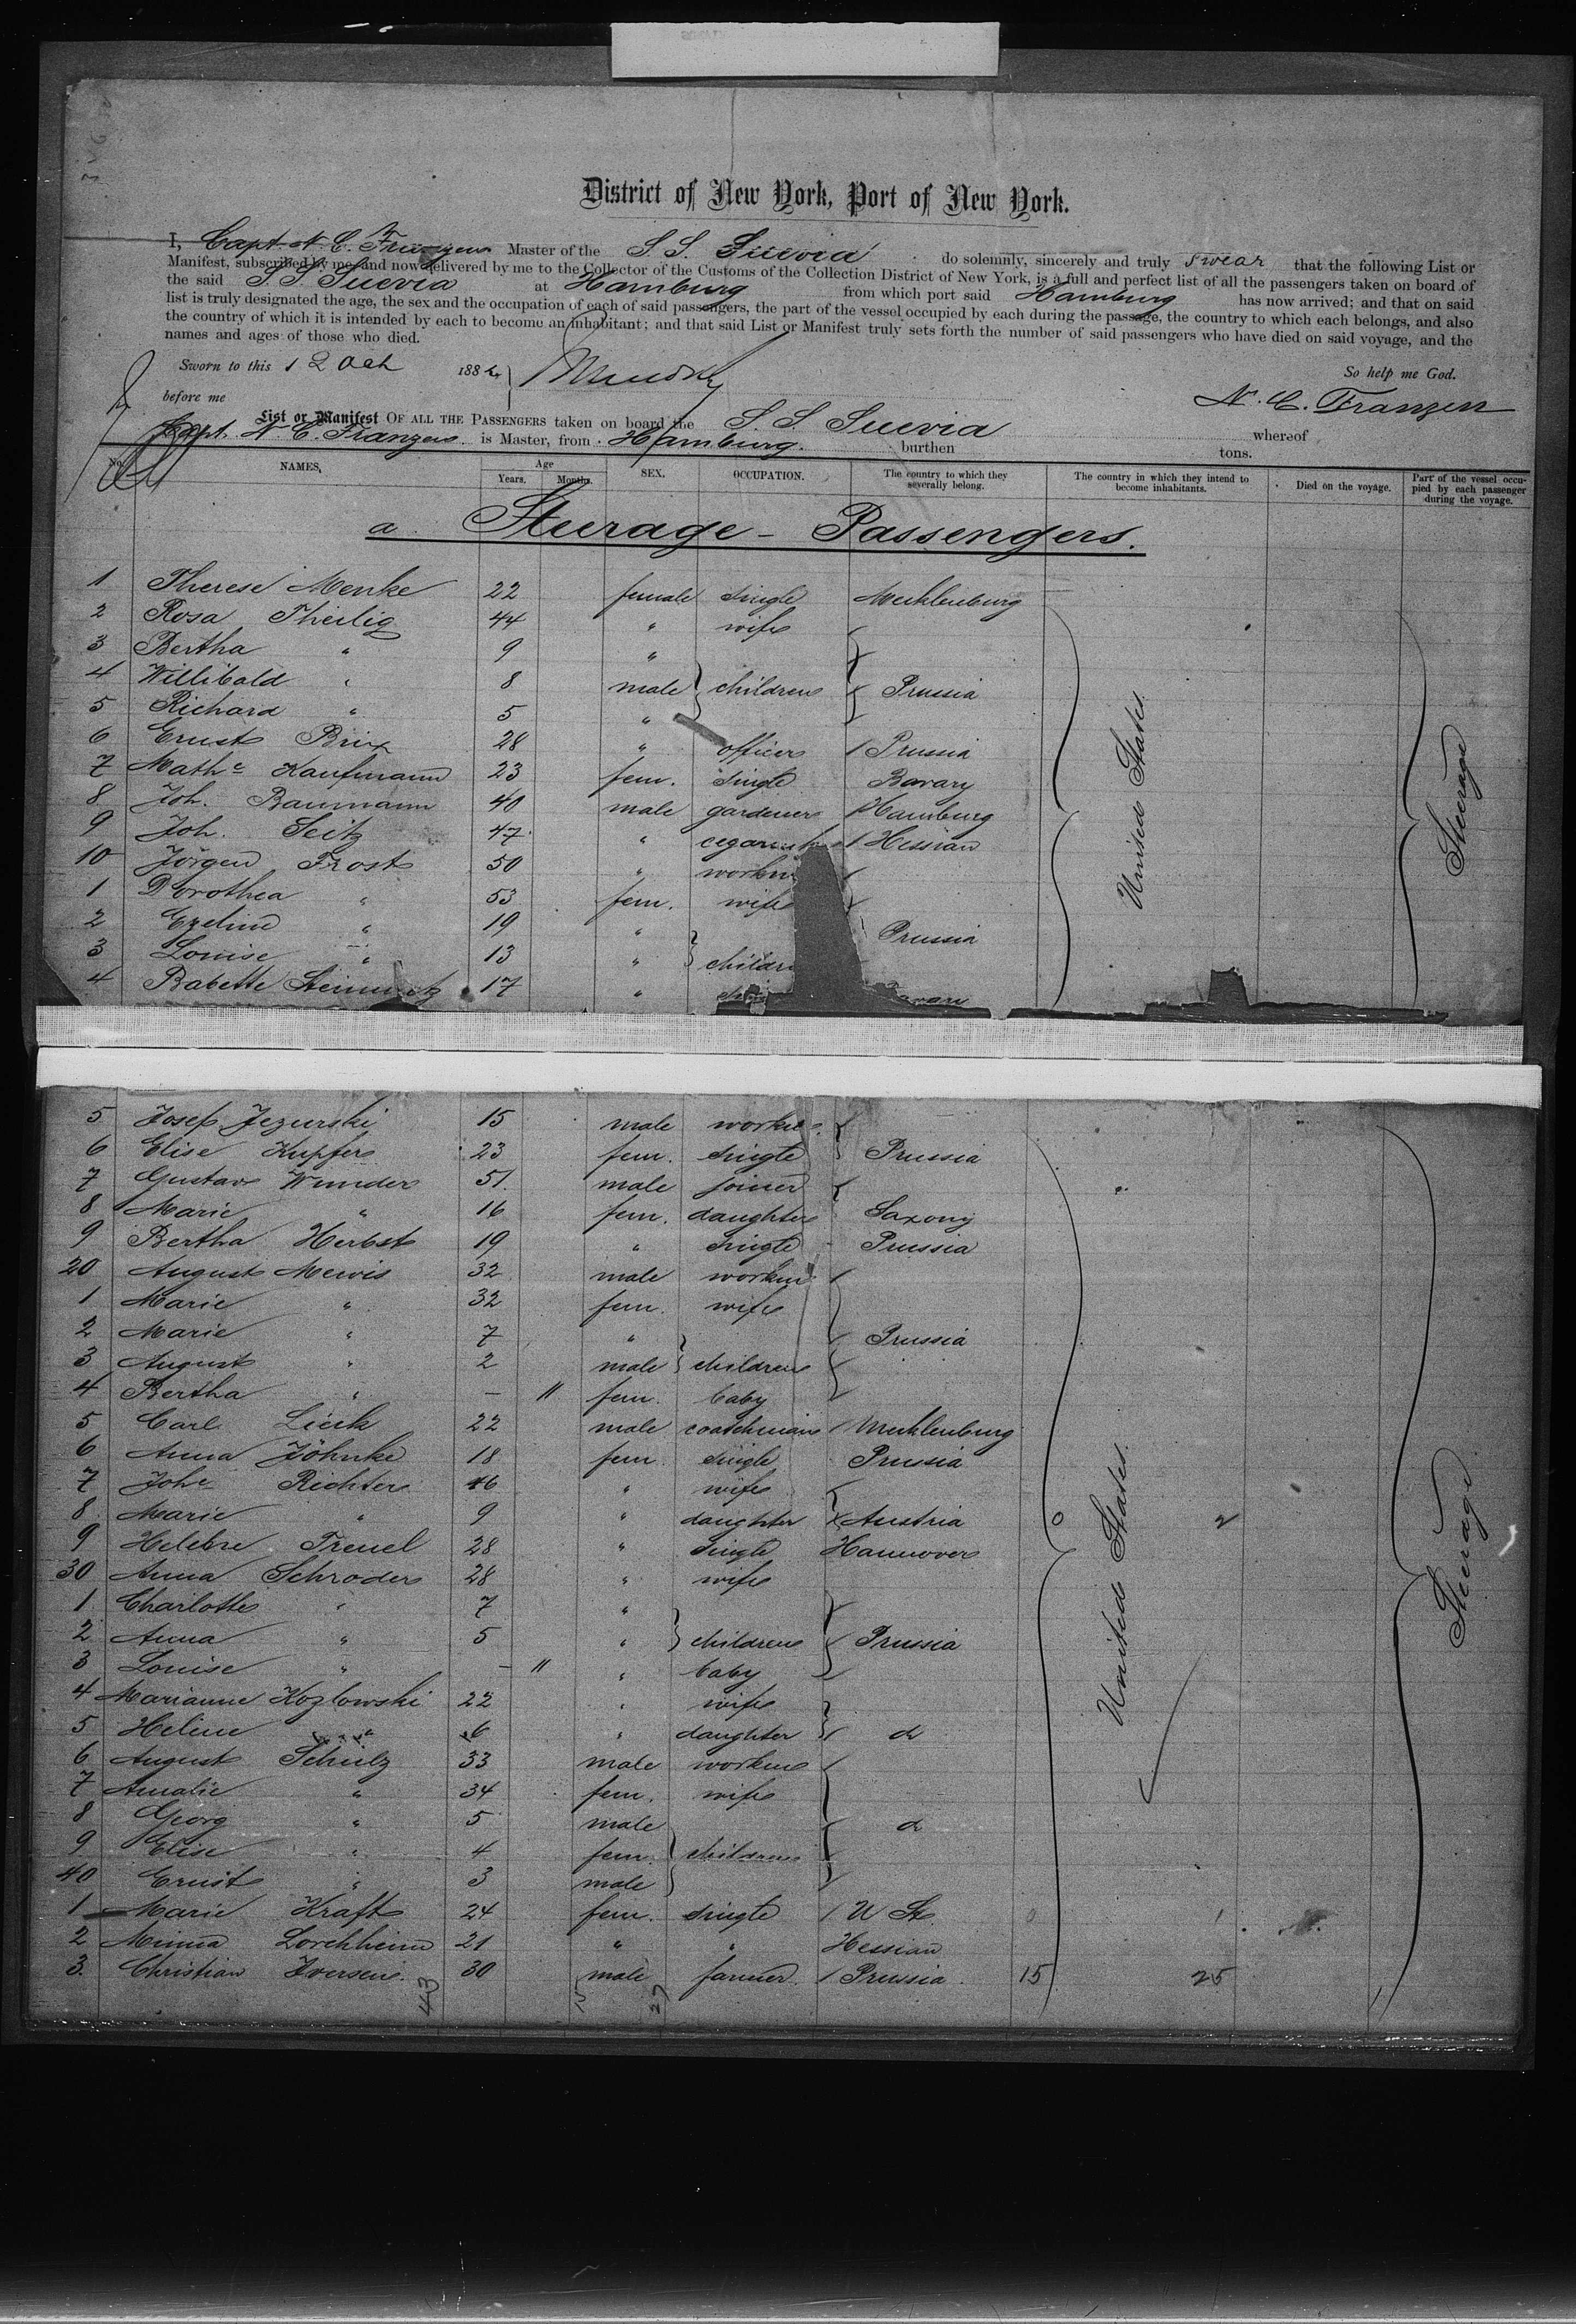 District of New York, Port of New York.
I, Capt. N. C. Franzen Master of the S. S. Suevia do solemnly, sincerely and truly swear that the following List or
Manifest, subscribed by me, and now delivered by me to the Collector of the Customs of the Collection District of New York, is a full and perfect list of all the passengers taken on board of
the said S. S. Suevia at Hamburg from which port said Hamburg has now arrived; and that on said
list is truly designated the age, the sex and the occupation of each of said passengers, the part of the vessel occupied by each during the passage, the country to which each belongs, and also
the country of which it is intended by each to become an inhabitant; and that said List or Manifest truly sets forth the number of said passengers who have died on said voyage, and the
names and ages of those who died.
Sworn to this 12 Oct 188 So help me God.
before me N. C. Franzen
List or Manifest OF ALL THE PASSENGERS taken on board the S. S. Suevia whereof
Capt. N. C. Franzen is Master, from Hamburg. burthen tons.
No. NAMES. Age Years. Months. SEX. OCCUPATION. The country to which they severally belong. The country in which they intend to become inhabitants. Died on the voyage. Part of the vessel occupied by each passenger during the voyage.
a. Steerage - Passengers.
1 Therese Menke 22 female single Mecklenburg
2 Rosa Theilig 44 " wife
3 Bertha " 9 "
4 Willibald " 8 male children Prussia
5 Richard " 5 "
6 Ernst Brix 28 " officer Prussia
7 Mathe Kaufmann 23 fem. single Bavary
8 Joh. Baumann 40 male gardener Hamburg
9 Joh. Seitz 47 " Hessian
10 Jörgen Frost 50 "
1 Dorothea " 53 fem. wife
2 Ezeline " 19 " Prussia
3 Louise " 13 "
4 Babette 17 "
United States.
Steerage
5 Josef Jezurski 15 male
6 Elise Kupfer 23 fem. single Prussia
7 Gustav Wunder 51 male joiner
8 Marie " 16 fem. daughter Saxony
9 Bertha Herbst 19 " single Prussia
20 August Mewis 32 male
1 Marie " 32 fem. wife
2 Marie " 7 " Prussia
3 August " 2 male children
4 Bertha " — 11 fem. baby
5 Carl Lieck 22 male coatchman Mecklenburg
6 Anna Jöhnke 18 fem. single Prussia
7 Johe Richter 46 " wife
8 Marie " 9 " daughter Austria 0 2
9 Helebre Treuel 28 " single Hannover
30 Anna Schroder 28 " wife
1 Charlotte " 7 "
2 Anna " 5 " children Prussia
3 Louise " — 11 " baby
4 Marianne Kozlowski 22 " wife
5 Heline " 6 " daughter d
6 August Schulz 33 male worker
7 Amalie " 34 fem. wife
8 Georg " 5 male d
9 Elise " 4 fem. children
40 Ernst " 3 male
1 Marie Kraft 24 fem. single U St. 0 1
2 Minna Lorchheim 21 " " Hessian
3. Christian Iversen 30 male farmer Prussia 15 25
United States.
Steerage
43 15 27